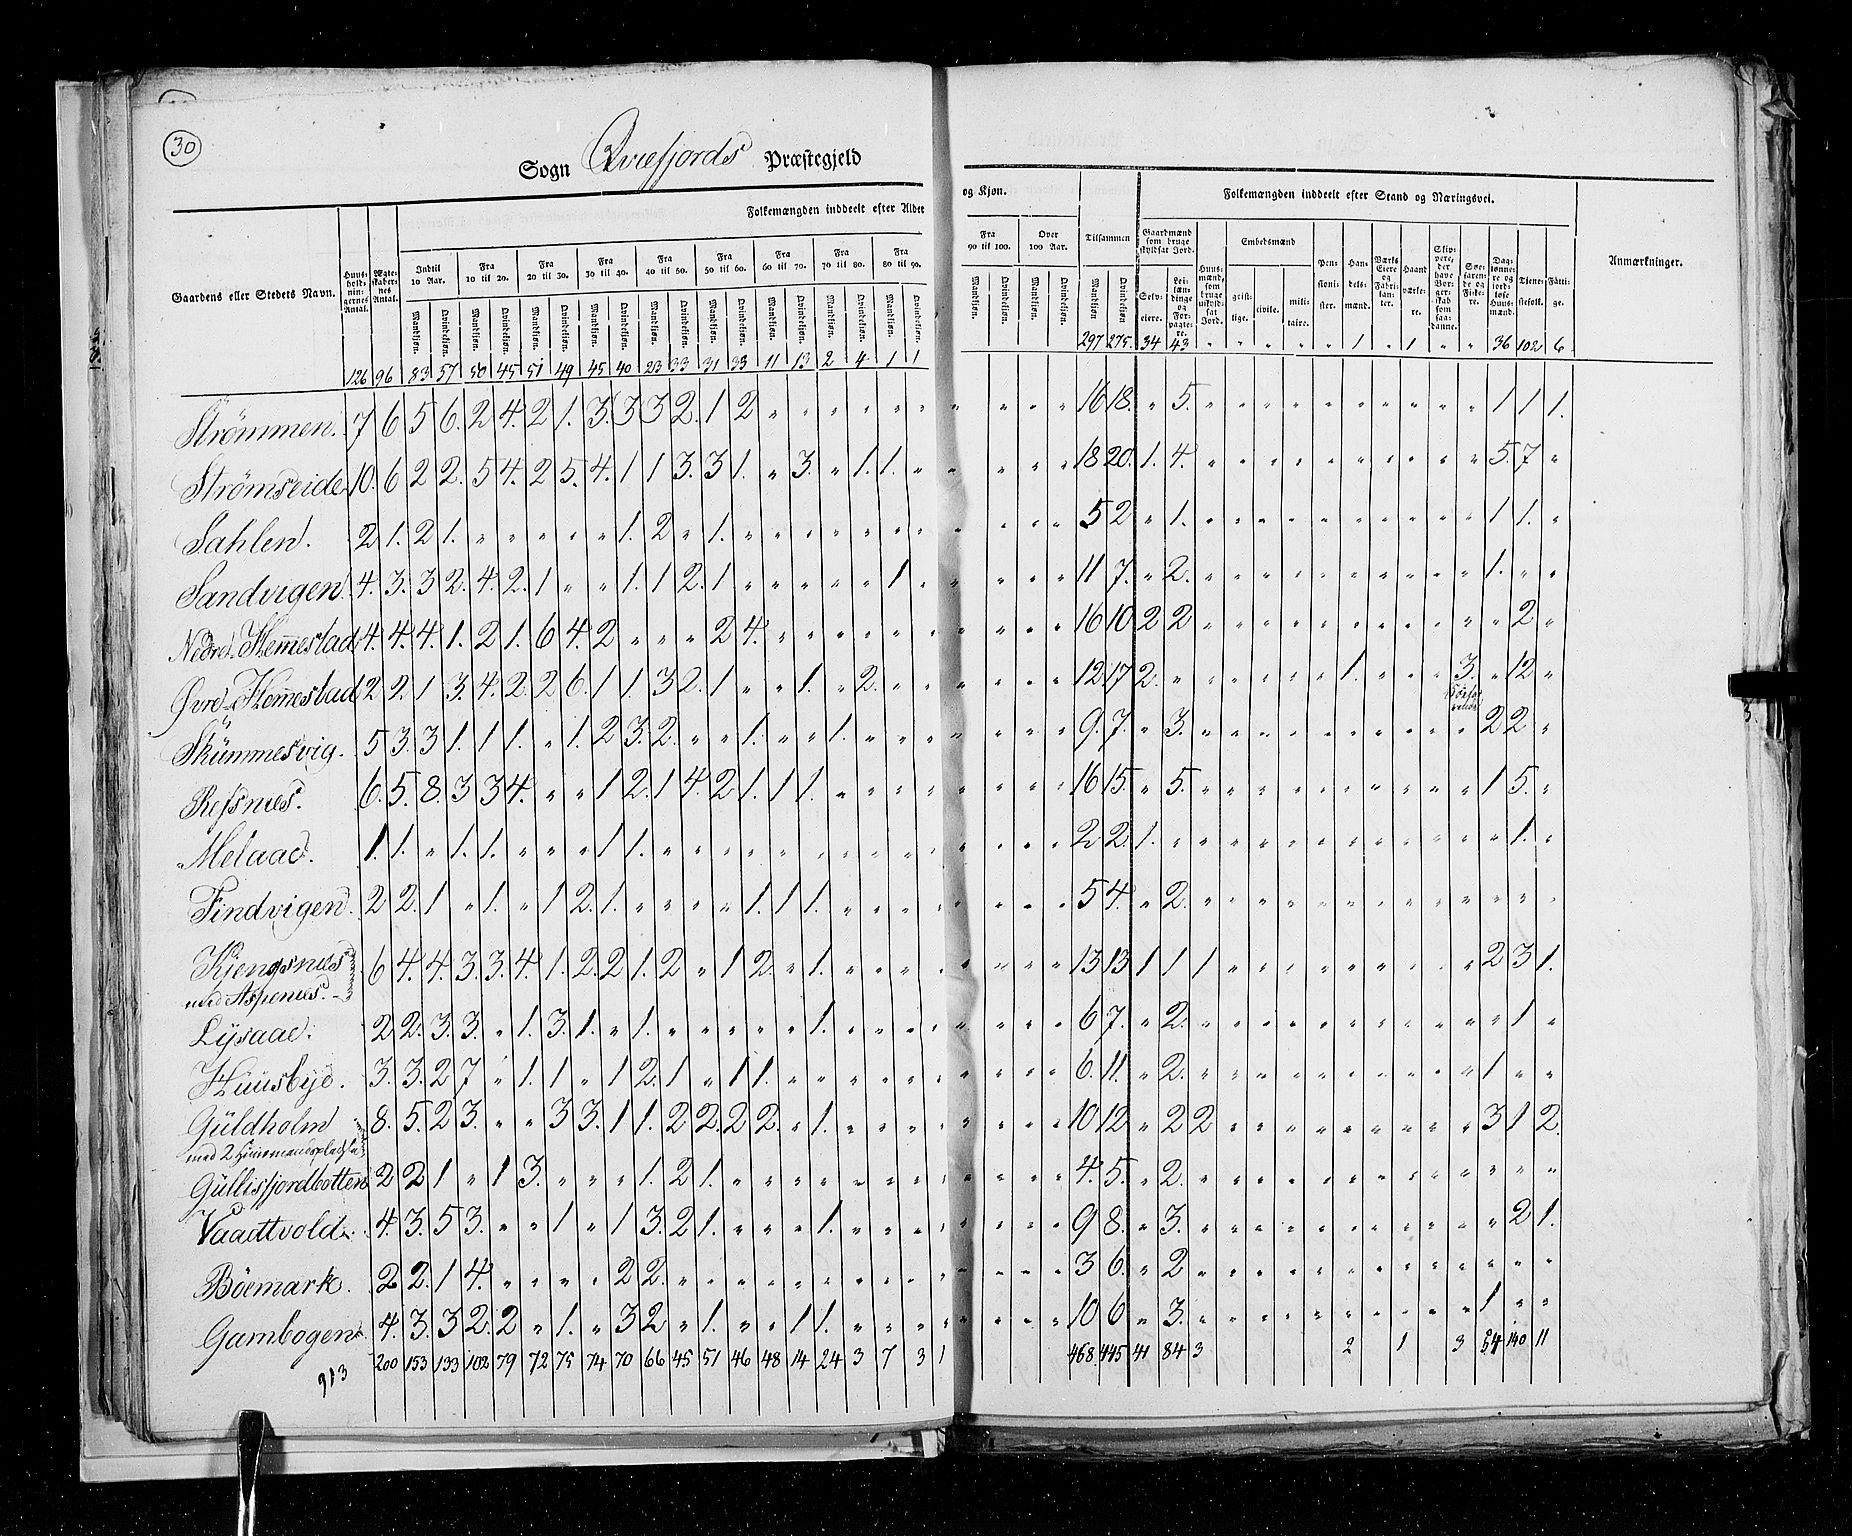 30
Sogn Qvæfjords Præstegjeld
Folkemængden inddeelt efter Alder og Kjøn.
Folkemængden inddeelt efter Stand og Næringsvei.
Gaardens eller Stedets Navn.
Huusholdningernes Antal.
Ægteskabernes Antal.
Indtil 10 Aar. Fra 10 til 20. Fra 20 til 30. Fra 30 til 40. Fra 40 til 50. Fra 50 til 60. Fra 60 til 70. Fra 70 til 80. Fra 80 til 90. Fra 90 til 100. Over 100 Aar. Tilsammen
Gaardmænd som bruge skyldsat Jord. Huusmænd, som bruge uskyldsat Jord. Embedsmænd Pensionister. Handelsmænd. Værks Eiere og Fabrikanter. Haandværkere. Skippere, der have Borgerskab som saadanne. Søefarende og Fiskere. Daglønnere og jordløse Huusmænd. Tienestefolk. Fattige. Anmærkninger.
Mandkjøn. Qvindekjøn. Selveiere. Leilændinge og Forpagtere. geistlige. civile. militaire.
126 96 83 57 50 45 51 49 45 40 23 33 31 33 11 13 2 4 1 1 297 275 34 43 " " " " " " 1 " 1 " " 36 102 6
Strømmen. 7 6 5 6. 2 4. 2 1. 3. 3 3 2. 1 2 " " " " " " " " " " 16 18. " 5. " " " " " " " " " " 1 1 1.
Strømseide 10. 6 2 2. 5 4. 2 5. 4. 1 1 3. 3 1. " 3. " 1. 1. " " " " " 18 20. 1. 4. " " " " " " " " " " 5. 7 "
Sahlen. 2 1. 2 1. " " " " " 1. 2 " 1. " " " " " " " " " " " 5 2 " 1. " " " " " " " " " " 1 1. "
Sandvigen. 4. 3. 3 2. 4. 2. 1 " " 1. 1 2. 1 " " " " " 1 " " " " " 11 7. " 2. " " " " " " " " " " 1. " "
Nedre Hemmestad 4. 4. 4. 1. 2 1. 6 4. 2 " " " 2 4. " " " " " " " " " " 16 10 2 2 " " " " " " " " " " " 2 "
Øvre Hemmestad 2 2. 1 3. 4. 2. 2 6. 1 1. 3 2. 1 " " 1. " 2. " " " " " " 12. 17 2. " " " " " " 1. " " " 3. " 12 "
Skümmesvig. 5 3. 3 1. 1 1. " 1. 2 3. 2. " " 1. " " 1. " " " " " " 9. 7. " 3. " " " " " " " " " " 2 2 "
Refsnes. 6. 5. 8. 3 3 4. " " 1 2. 1 4. 2 1. 1 1. " " " " " " " " 16 15. " 5. " " " " " " " " " " 1 5. "
Melaae. 1. 1. " 1. 1. " " " 1 1. " " " " " " " " " " " " " " 2 2 1. " " " " " " " " " " " " 1. "
Findvigen. 2 2. 1 " 1. " 1 2. 1. " " " " 1. 1 1. " " " " " " " " 5 4. " 2. " " " " " " " " " " " " "
Kjengsnes
med Aspenes. 6 4. 4. 3. 3. 4. 1. 2. 2 1. 2 " 1 2. " 1. " " " " " " " " 13 13 1 1 1 " " " " " " " " " 2 3 1.
Lysaae. 2 2. 3. 3. " 1. 3. 1. " 1. " " " " " 1. " " " " " " " " 6 7. " 2. " " " " " " " " " " " 1 "
Huusbye. 3. 3. 2 7 " 1. 1 " 1 2. 1 " 1 1. " " " " " " " " " " 6. 11. " 2. " " " " " " " " " " 1 " "
Güldholm
med 2 Huusmandspladse 8. 5. 2 3. " " 3 3. 1 1. 2 2. 2 2. " 1. " " " " " " " " 10 12 " 2 2 " " " " " " " " " 3 1 2.
Gullisfjordbotten 2 2 1 " 1 3. " " " 1. 2 1. " " " " " " " " " " " " 4. 5. " 2. " " " " " " " " " " " " "
Vaadtvold. 4. 3. 5 3. " " 1 " 1 3. 2 1. " " " 1. " " " " " " " " 9 8. " 3. " " " " " " " " " " " 2 1.
Böemark. 2 2. 1 4. " " " " 2 2. " " " " " " " " " " " " " " 3 6. " 2 " " " " " " " " " " " " "
Gambogen. 4. 3. 3 2. 2 " 1. " 3 2 " 1. " " 1 1. " " " " " " " " 10 6 " 3. " " " " " " " " " " 1 " "
913 200 153 133 102 79 72 75 74 70 66 45 51 46 48 14 24 3 7 3 1 468 445 41 84 3 2 1 3 54 140 11